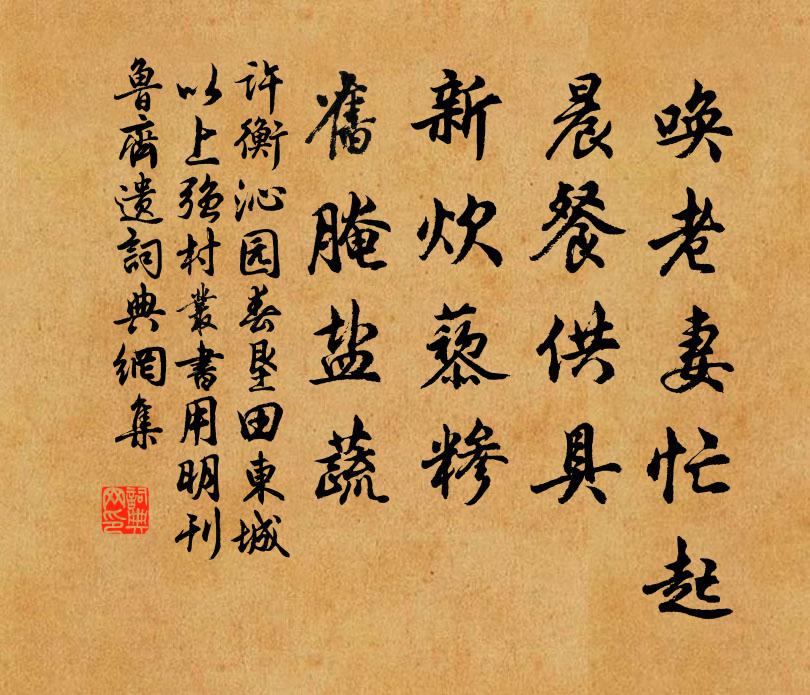 唤老妻忙起
晨餐供具
新炊藜糁
舊腌盐蔬
许衡沁园春垦田東城
以上强村叢書用明刊
魯齋遺詞典網集
詞典網印